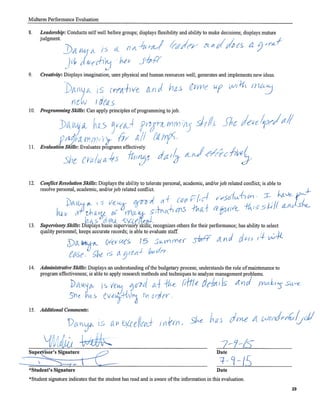 Midterm Performance Evaluation
8. Leadership: Conducts self well before groups; displays flexibility and ability to make decisions; displays mature
judgment.
Danya is a natural leader and does a great
job directing her staff
9. Creativity: Displays imagination; uses physical and human resources well; generates and implements new ideas.
Danya is creative and has come up with many
new ideas
10. Programming Skills: Can apply principles of programming to job.
Danya has great programming skills She developed all
programming for all camps.
11. Evaluation Skills: Evaluates programs effectively.
She evaluates things daily and effectively.
12. Conflict Resolution Skills: Displays the ability to tolerate personal, academic, and/or job related conflict; is able to
resolve personal, academic, and/or job related conflict.
Danya is very good at conflict resolution. I have put
her in charge of many situations that require this skill and she
has done excellent
13. Supervisory Skills: Displays basic supervisory skills; recognizes others for their performance; has ability to select
quality personnel; keeps accurate records; is able to evaluate staff.
Danya oversees 15 summer staff and does it with
ease. She is a great leader.
14. Administrative Skills: Displays an understanding of the budgetary process; understands the role of maintenance to
program effectiveness, is able to apply research methods and techniques to analyze management problems.
Danya is very good at the little details and making sure
She has everything in order.
15. Additional Comments:
Danya is an excellent intern. She has done a wonderful job
7-9-15
Supervisor's Signature Date
7-9-15
*Student's Signature Date
*Student signature indicates that the student has read and is aware of the information in this evaluation.